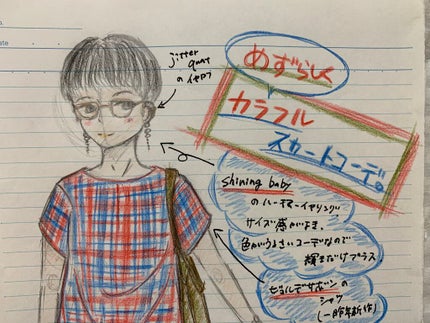 めずらしく
カラフル
スカートコーデ。
jitter
quat
のイヤカフ
shining baby
のハーキマーイヤリング
サイズ感がよき、
色がうるさいコーデなので
輝きだけプラス
セョルデサボンの
シャツ
(一昨年新作)